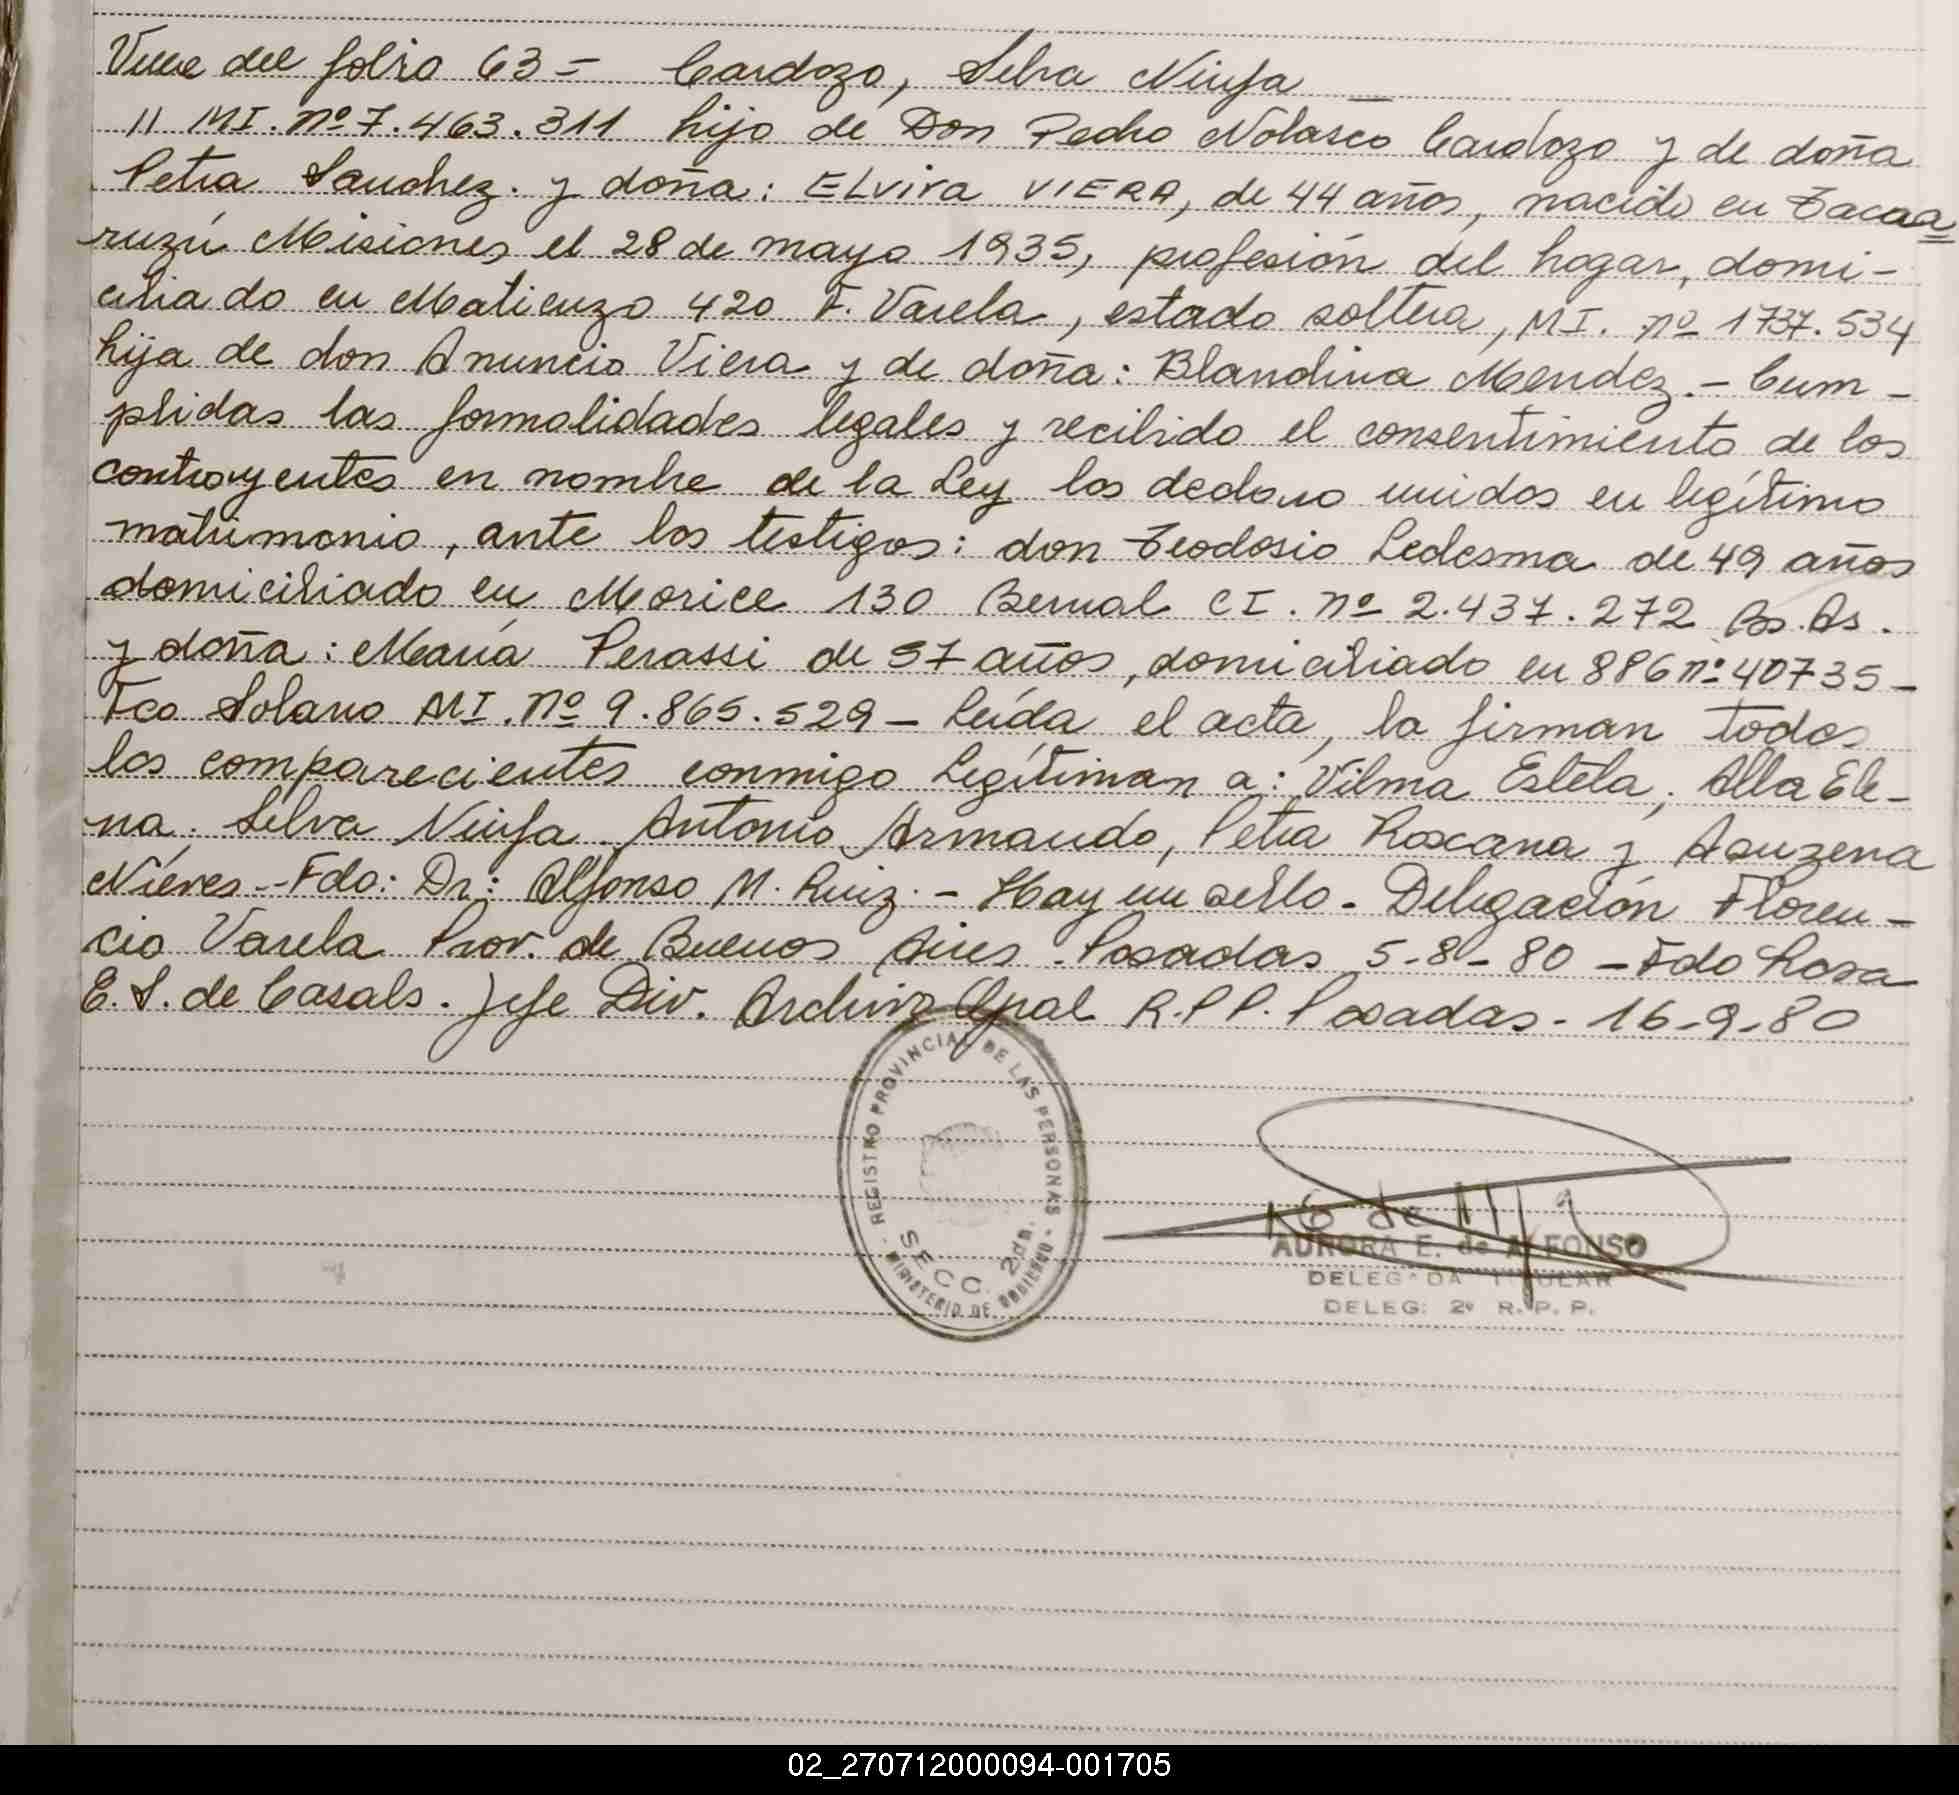 Viene del folio 63 = Cardozo, Selva Ninfa
11 MI. nº 7.463.311 hijo de Don Pedro Nolasco Cardozo y de doña
Petra Sanchez. y doña: ELvira VIERA, de 44 años, nacido en Tacua
ruzú Misiones el 28 de mayo 1935, profesión del hogar, domi-
ciliado en Matienzo 420 F. Varela, estado soltera, MI. nº 1737.534
hija de don Anuncio Viera y de doña: Blandina Mendez.- Cum-
plidas las formalidades legales y recibido el consentimiento de los
contrayentes en nombre de la Ley los declaro unidos en legítimo
matrimonio, ante los testigos: don Teodosio Ledesma de 49 años
domiciliado en Morice 130 Bernal CI. nº 2.437.272 Bs. As.
y doña: María Perassi de 37 años, domiciliado en 886 nº 40735-
Fco Solano MI. nº 9.865.529 - Leída el acta, la firman todos
los comparecientes conmigo Legítiman a: Vilma Estela, Alla Ele-
na. Selva Ninfa. Antonio Armando, Petra Roxana y Asuzena
Niéves.- Fdo: Dr: Alfonso M. Ruiz.- Hay un sello. Delegación Floren-
cio Varela Prov. de Buenos Aires. Posadas 5-8-80 - Fdo Rosa
E. S. de Casals. Jefe Div. Archivo Gral R.P.P. Posadas - 16-9-80
REGISTRO PROVINCIAL DE LAS PERSONAS
SECC. 2da.
MINISTERIO DE GOBIERNO
AURORA E. de ALFONSO
DELEGADA TITULAR
DELEG: 2º R. P. P.
02_270712000094-001705